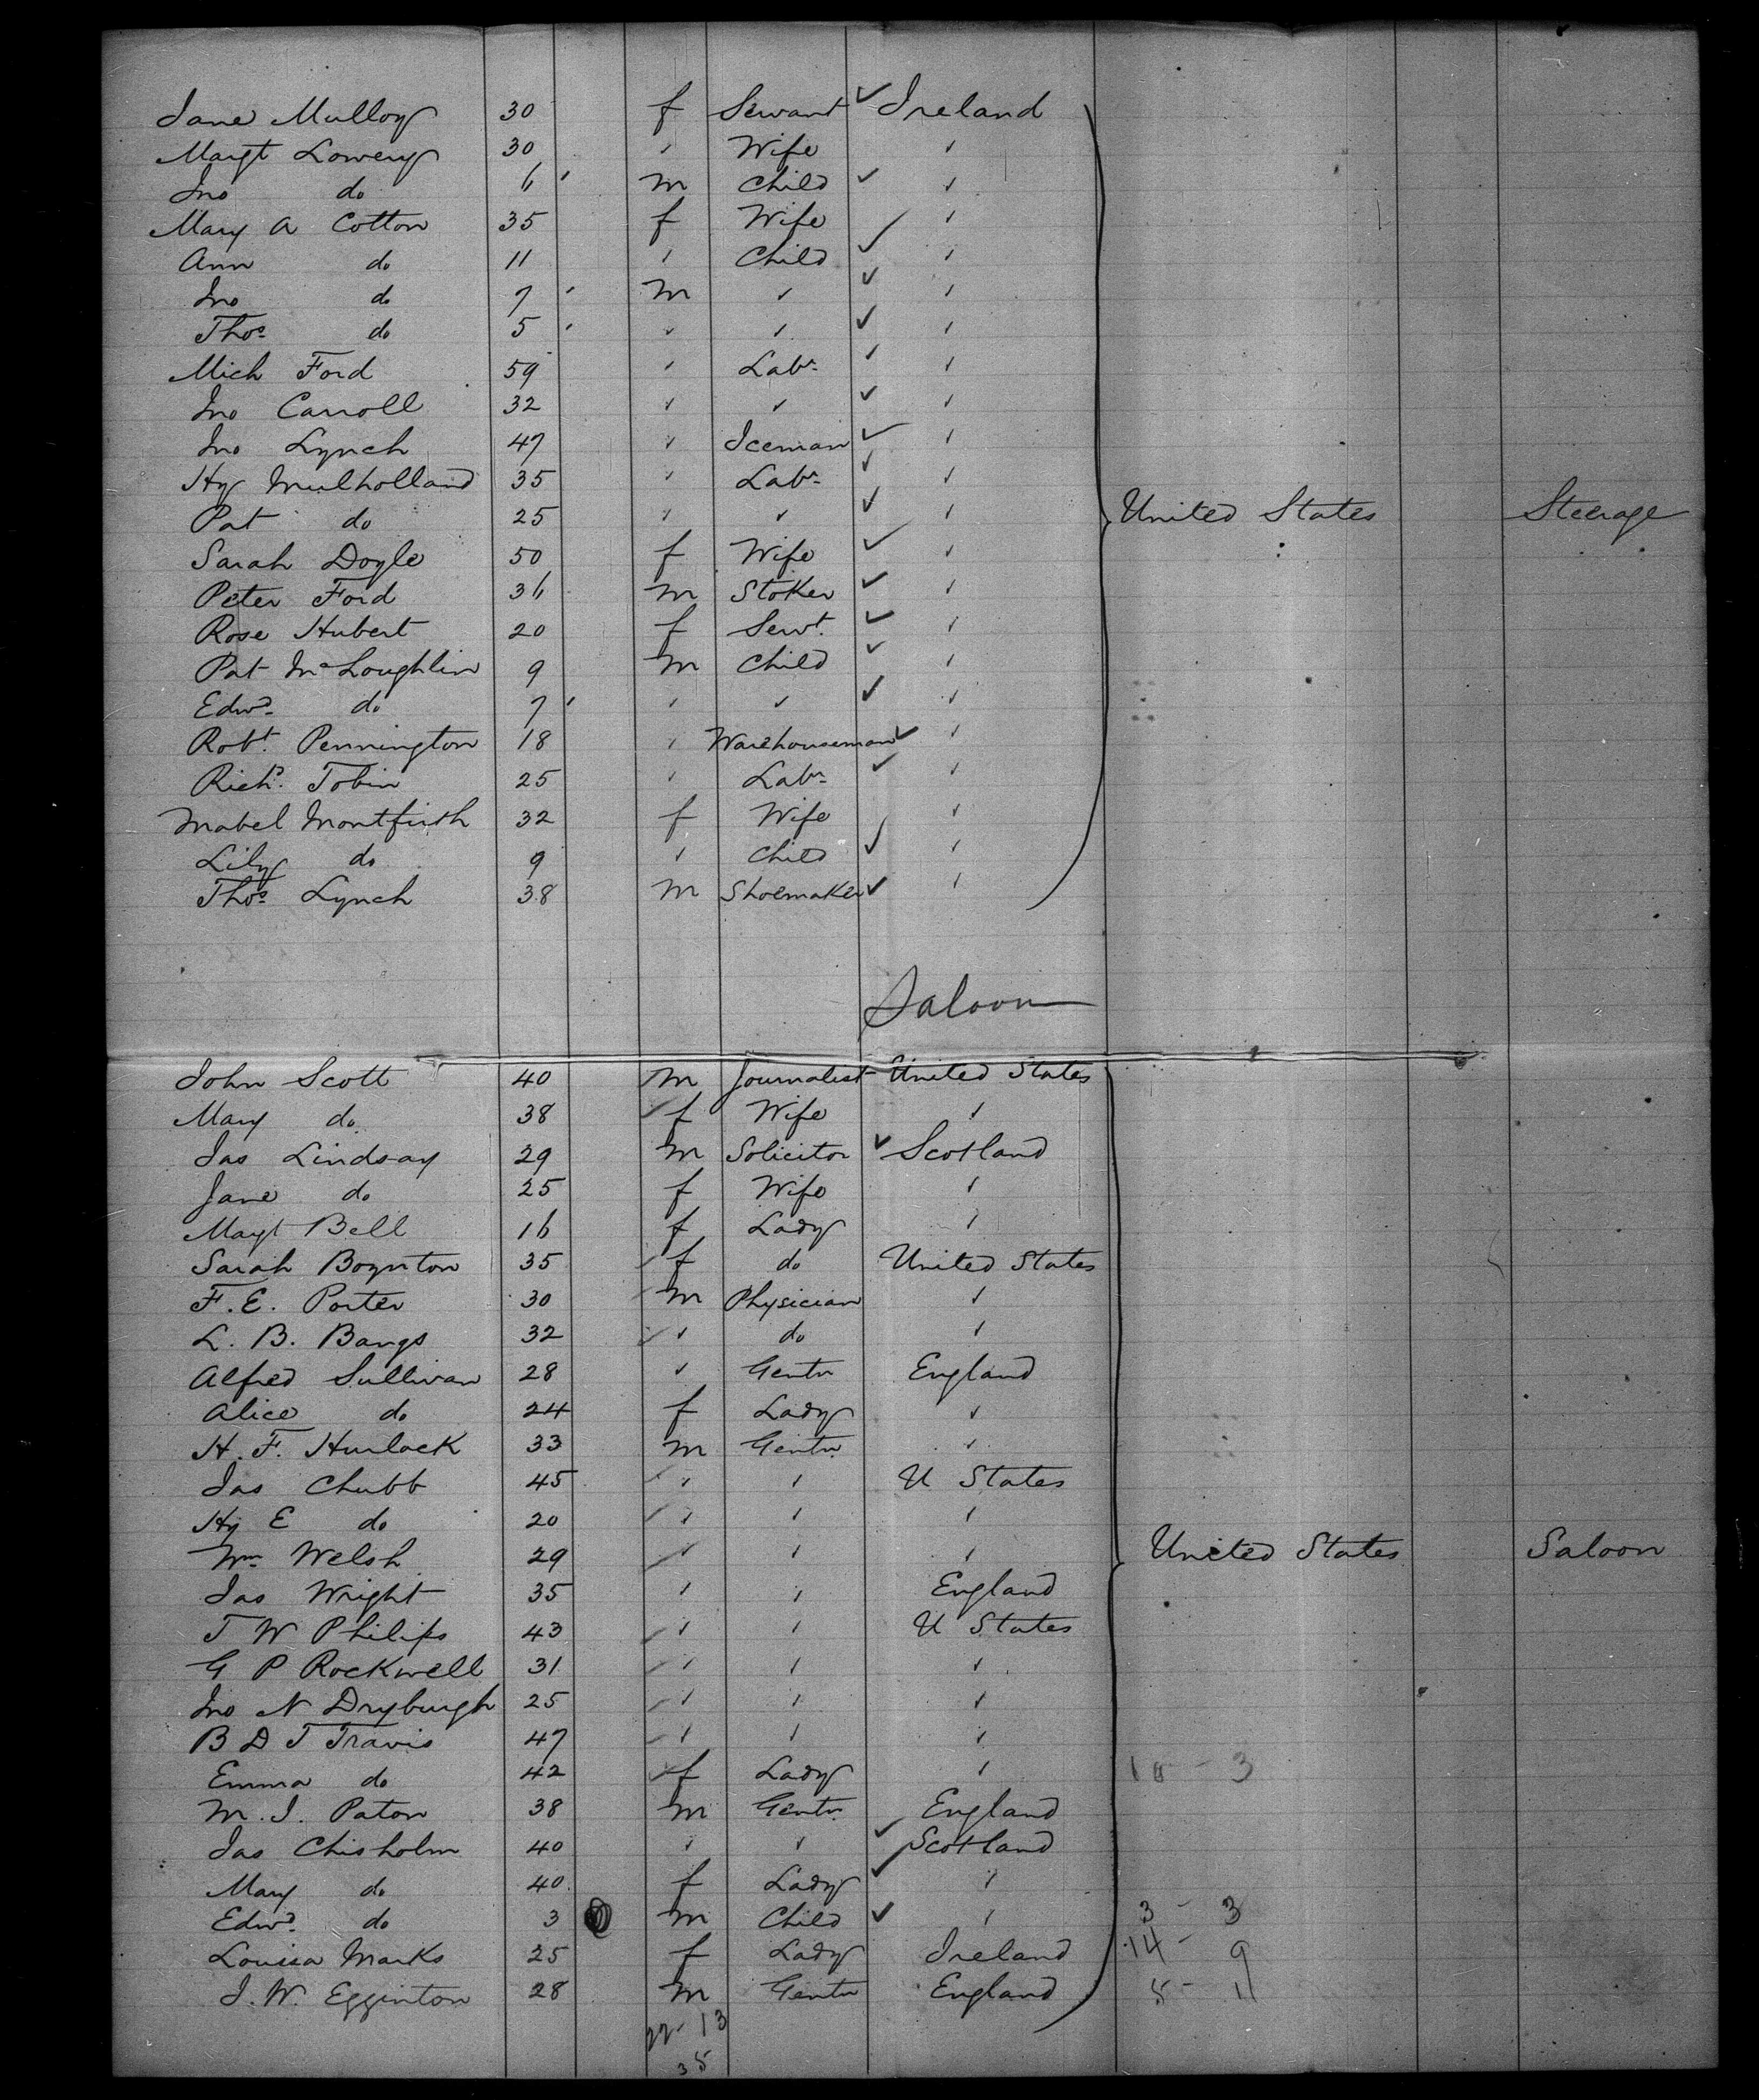 Jane Mulloy 30 f Servant ✓ Ireland
Margt Lowery 30 " Wife "
Jno do 6 ' m Child ✓ "
Mary A Cotton 35 f Wife "
Ann do 11 " Child ✓ "
Jno do 7 ' m " ✓ "
Thos do 5 ' " " ✓ "
Mich Ford 59 " Labr ✓ "
Jno Carroll 32 " " ✓ "
Jno Lynch 47 " Iceman ✓ "
Hy Mulholland 35 " Labr ✓ "
Pat do 25 " " ✓ " United States Steerage
Sarah Doyle 50 f Wife ✓ "
Peter Ford 36 m Stoker ✓ "
Rose Hubert 20 f Servt. ✓ "
Pat McLoughlin 9 m Child ✓ "
Edwd do 7 ' " " ✓ "
Robt. Pennington 18 " Warehouseman ✓ "
Richd. Tobin 25 " Labr ✓ "
Mabel Montfirth 32 f Wife "
Lily do 9 " Child ✓ "
Thos Lynch 38 m Shoemaker ✓ "
Saloon
John Scott 40 m Journalist United States
Mary do 38 f Wife "
Jas Lindsay 29 m Solicitor ✓ Scotland
Jane do 25 f Wife "
Margt Bell 16 f Lady "
Sarah Boynton 35 f do United States
F. E. Porter 30 m Physician "
L. B. Bangs 32 " do "
Alfred Sullivan 28 " Gentn England
Alice do 24 f Lady "
H. F. Hurlock 33 m Gentn "
Jas Chubb 45 " " U States
Hy E do 20 " " "
Wm Welsh 29 " " " United States Saloon
Jas Wright 35 " " England
T W Philips 43 " " U States
G P Rockwell 31 " " "
Jno N Dryburgh 25 " " "
B D T Travis 47 " " "
Emma do 42 f Lady " 10 - 3
M. J. Paton 38 m Gentn England
Jas Chisholm 40 " " ✓ Scotland
Mary do 40 f Lady ✓ "
Edwd do 3 m Child ✓ " 3 - 3
Louisa Marks 25 f Lady Ireland 14 - 9
J. W. Egginton 28 m Gentn England 5 - 11
22 - 13
35